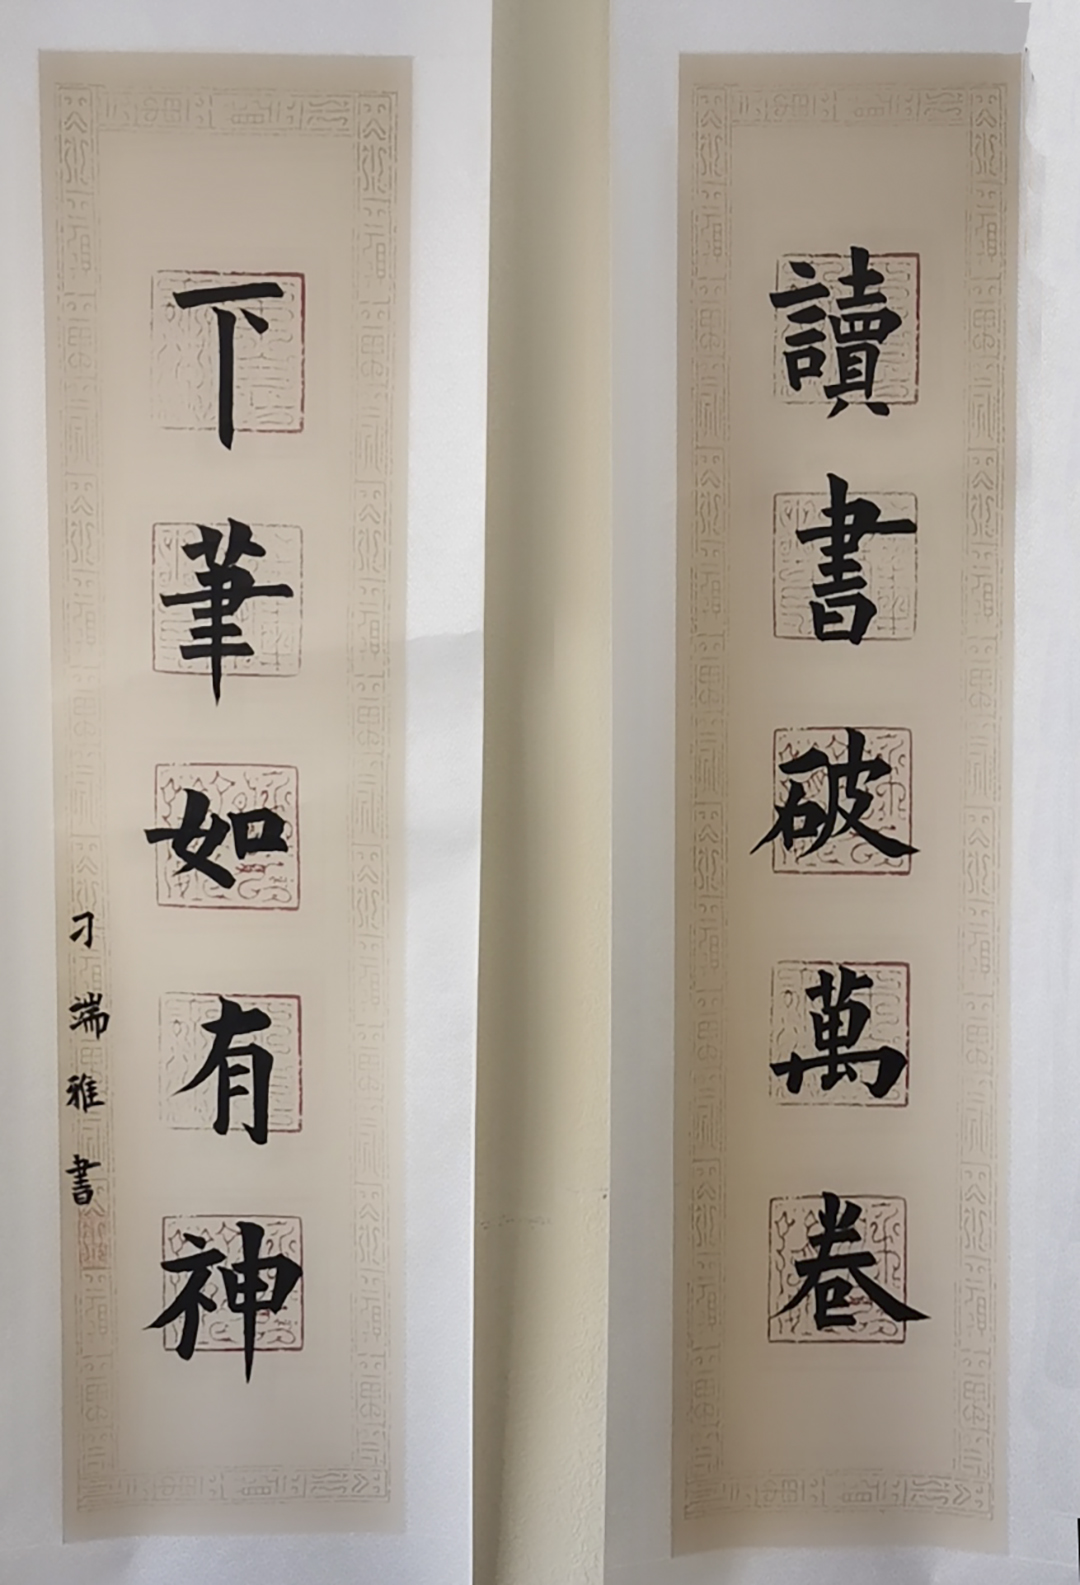 讀書破萬卷
下筆如有神
刁端雅書